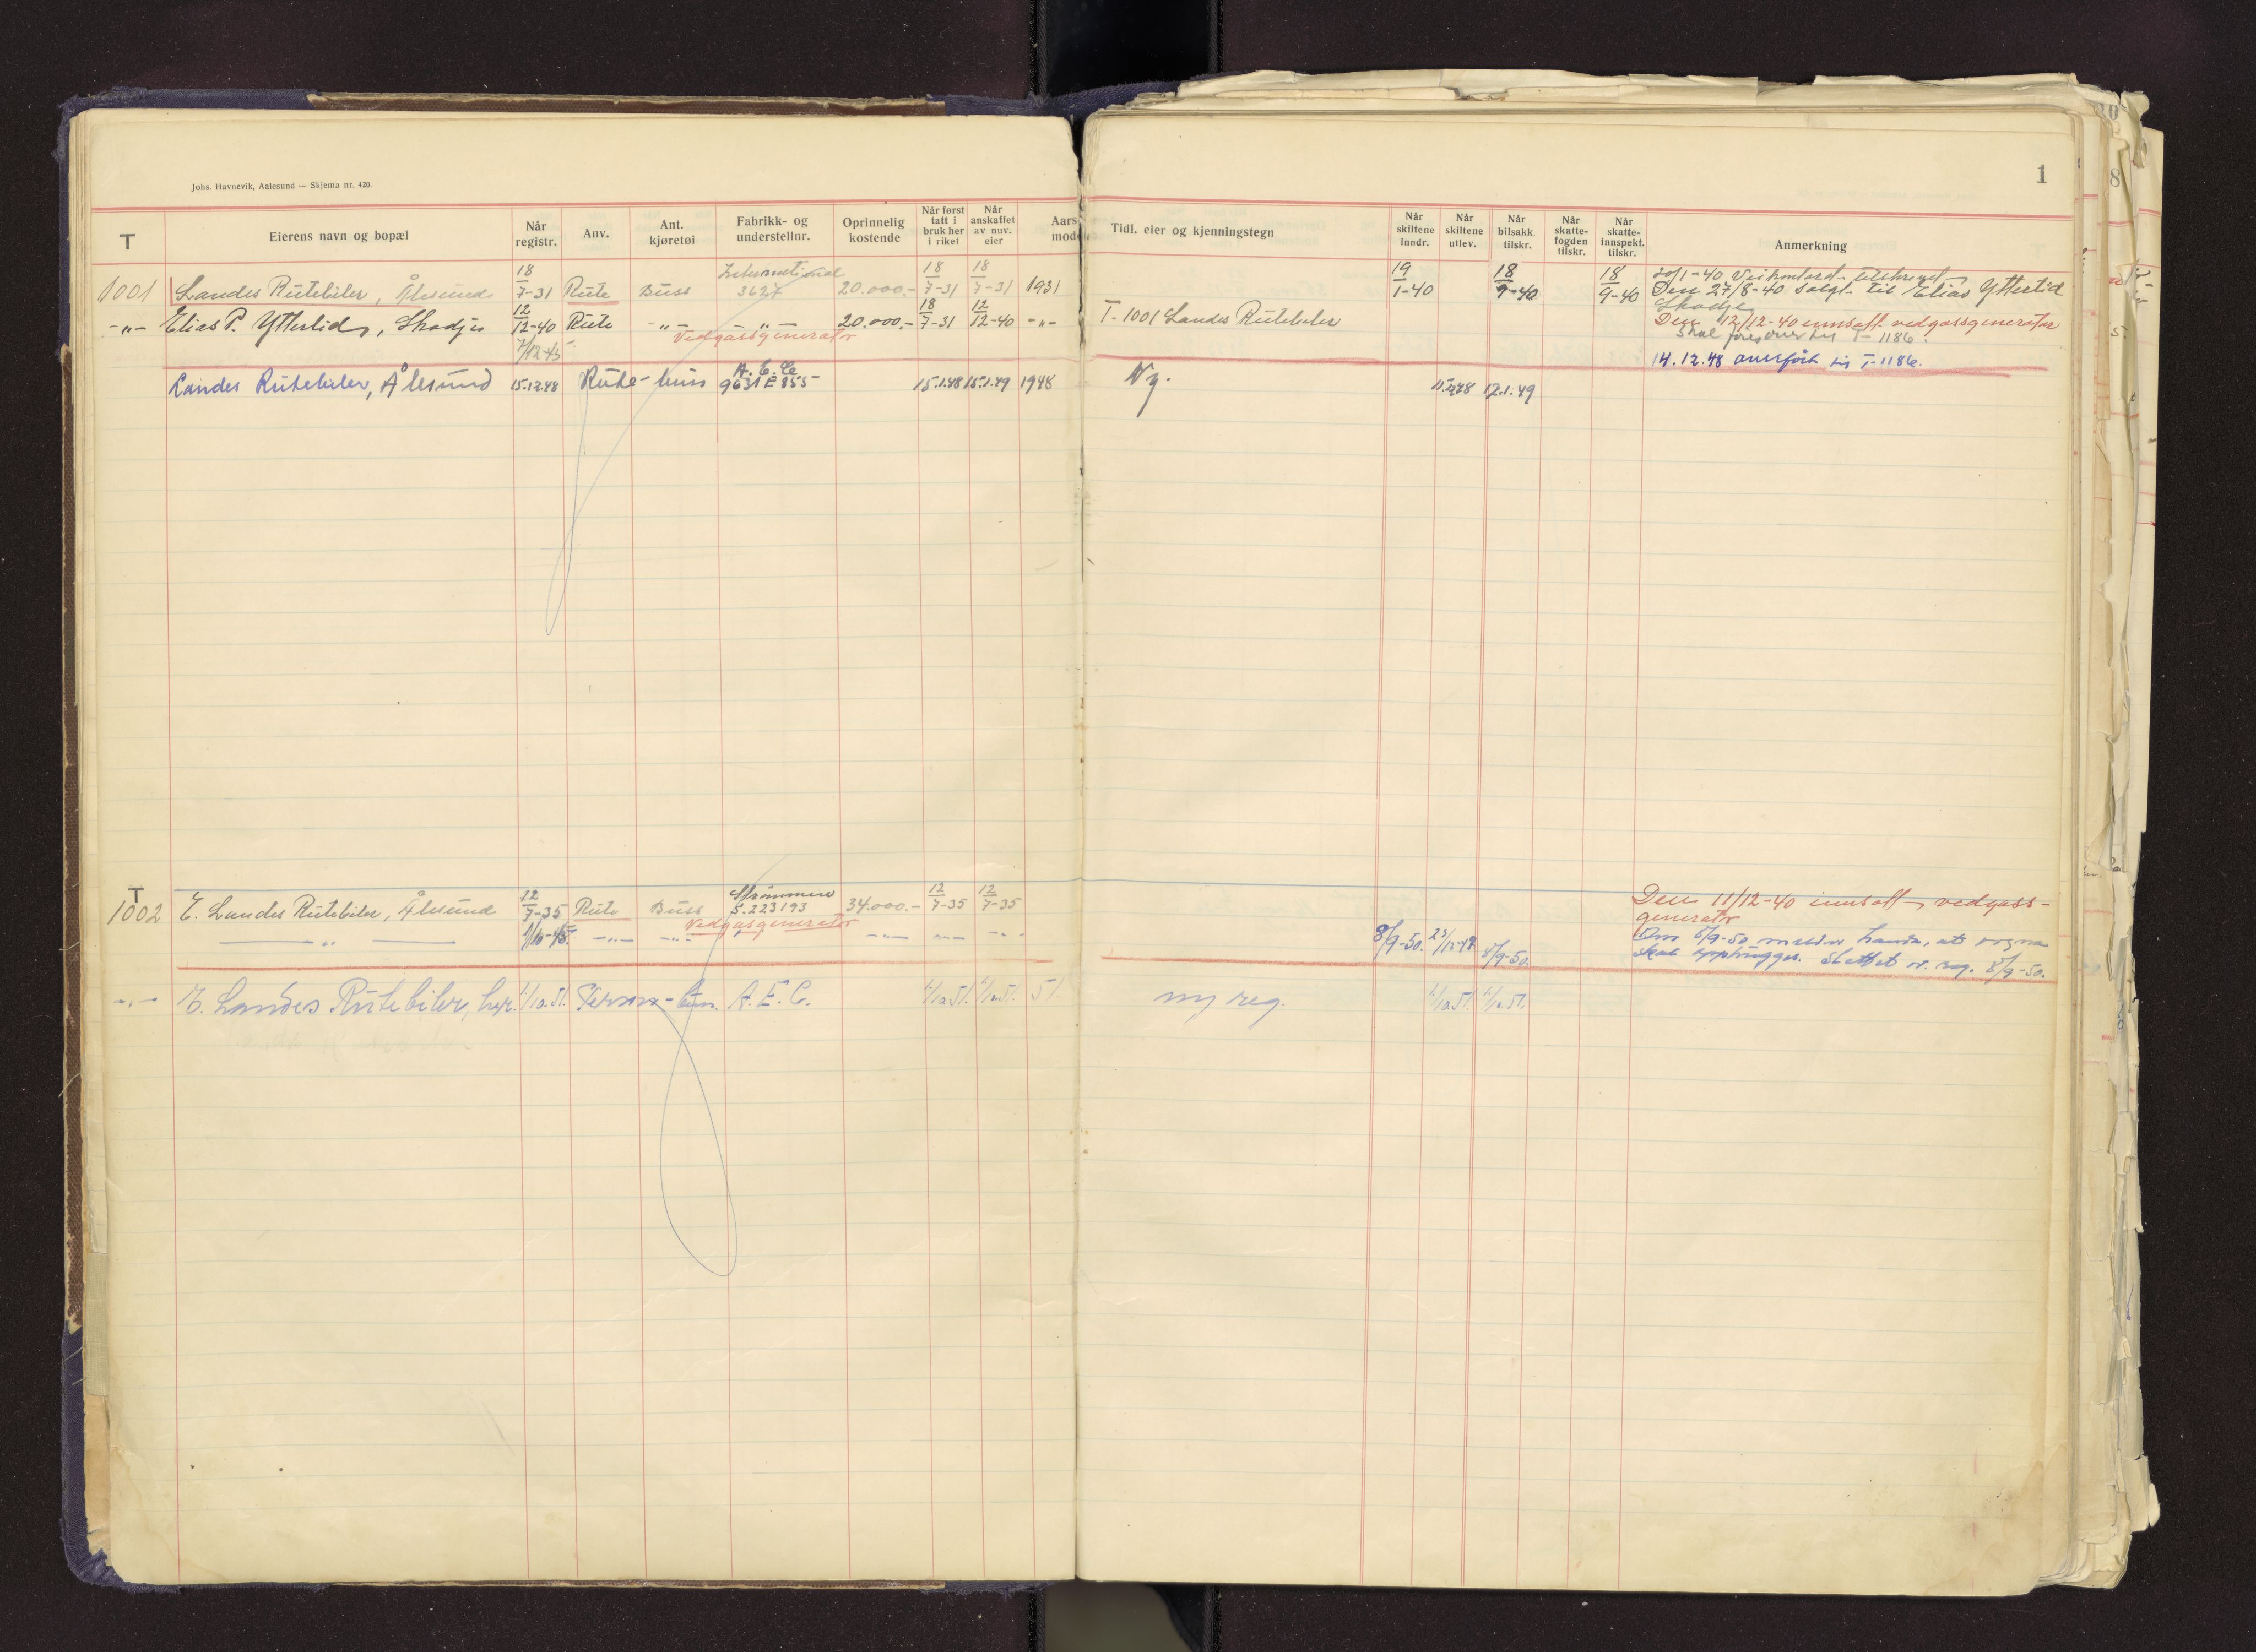 Johs. Havnevik, Aalesund — Skjema nr. 420
1
T
Eierens navn og bopæl
Når registr.
Anv.
Ant. kjøretøi
Fabrikk- og understellnr.
Oprinnelig kostende
Når først tatt i bruk her i riket
Når anskaffet av nuv. eier
Aars
mod
Tidl. eier og kjenningstegn
Når skiltene inndr.
Når skiltene utlev.
Når bilsakk. tilskr.
Når skatte-fogden tilskr.
Når skatte-innspekt. tilskr.
Anmerkning
1001 Landes Rutebiler, Ålesund 18/7-31 Rute Buss International 3627 20.000.- 18/7-31 18/7-31 1931 19/1-40 18/9-40 18/9-40 20/1-40 Veikontoret tilskrevet
Den 27/8-40 solgt til Elias Yttertid
Skodje
-"- Elias P. Ytterlid, Skodje 12/12-40 Rute -"- -"- 20.000.- 18/7-31 12/12-40 -"- T-1001 Landes Rutebiler Den 12/12-40 innsatt vedgassgenerator
Vedgassgenerator
7/12-45
Skal føres over til T-1186.
14.12.48 overført til T-1186.
Landes Rutebiler, Ålesund 15.12.48 Rute-buss A.E.C. 9631E855 15.1.48 15.1.49 1948 Ny. 17.1.49
T
1002 E. Landes Rutebiler, Ålesund 12/7-35 Rute Buss Strømmen S.223193 34.000.- 12/7-35 12/7-35 Den 11/12-40 innsatt vedgass-
generator
Vedgasgenerator
-"- 1/10-45 -"- -"- -"- -"- -"- 8/9-50. 23/12-47 8/9-50.
5/9-50 melder Landes, at vogna
skal opphugges. Slettet av reg. 8/9-50.
-"- E. Landes Rutebiler, her. 1/10.51. Person-buss. A.E.C. 1/10.51. 1/10.51. 51 ny reg. 1/10.51. 1/10.51.